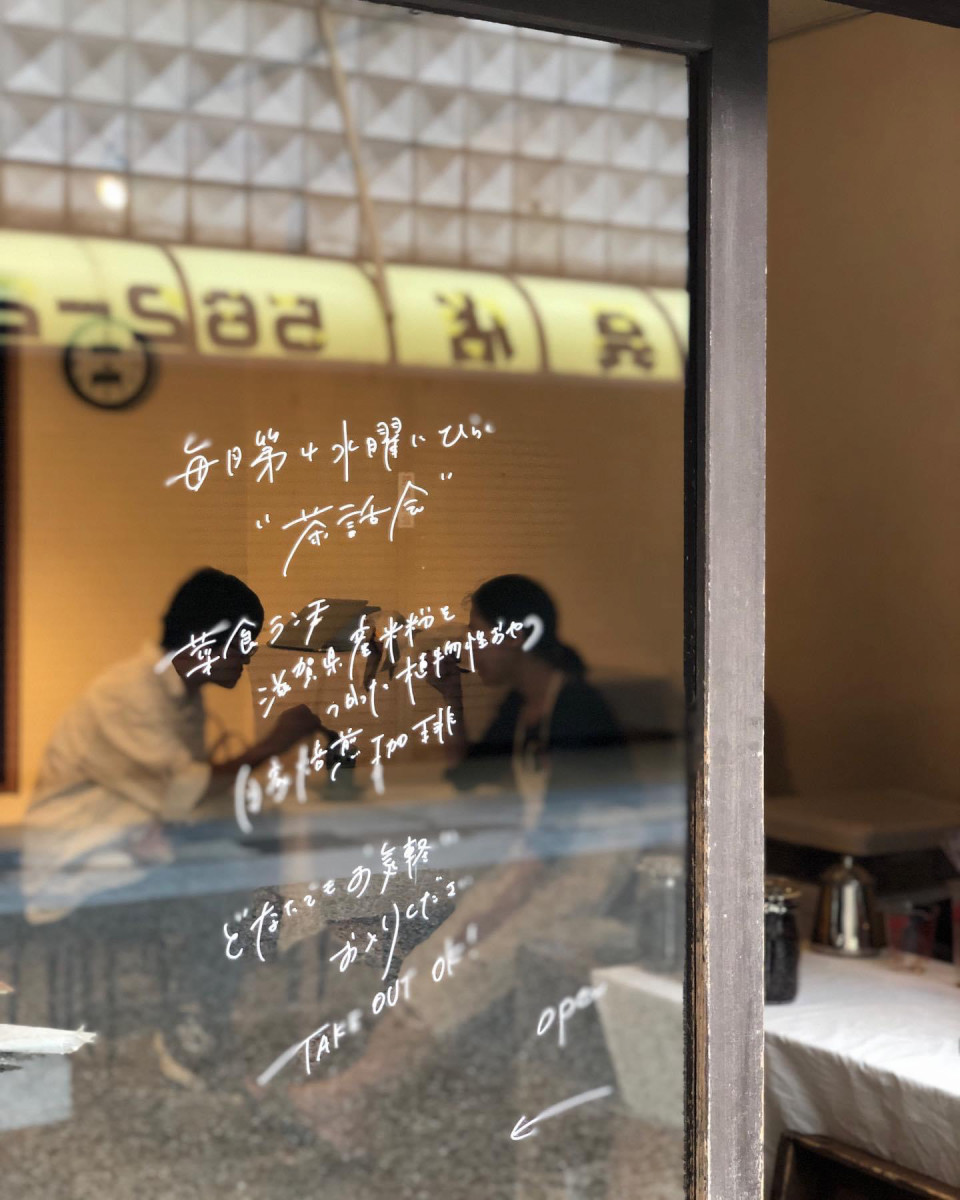 562-2
品 佑
毎月第4水曜にひらく
"茶話会"
菜食ランチ
滋賀県産米粉を
つかった植物性おやつ
自家焙煎珈琲
どなたでもお気軽に
およりください
TAKE OUT OK!
open